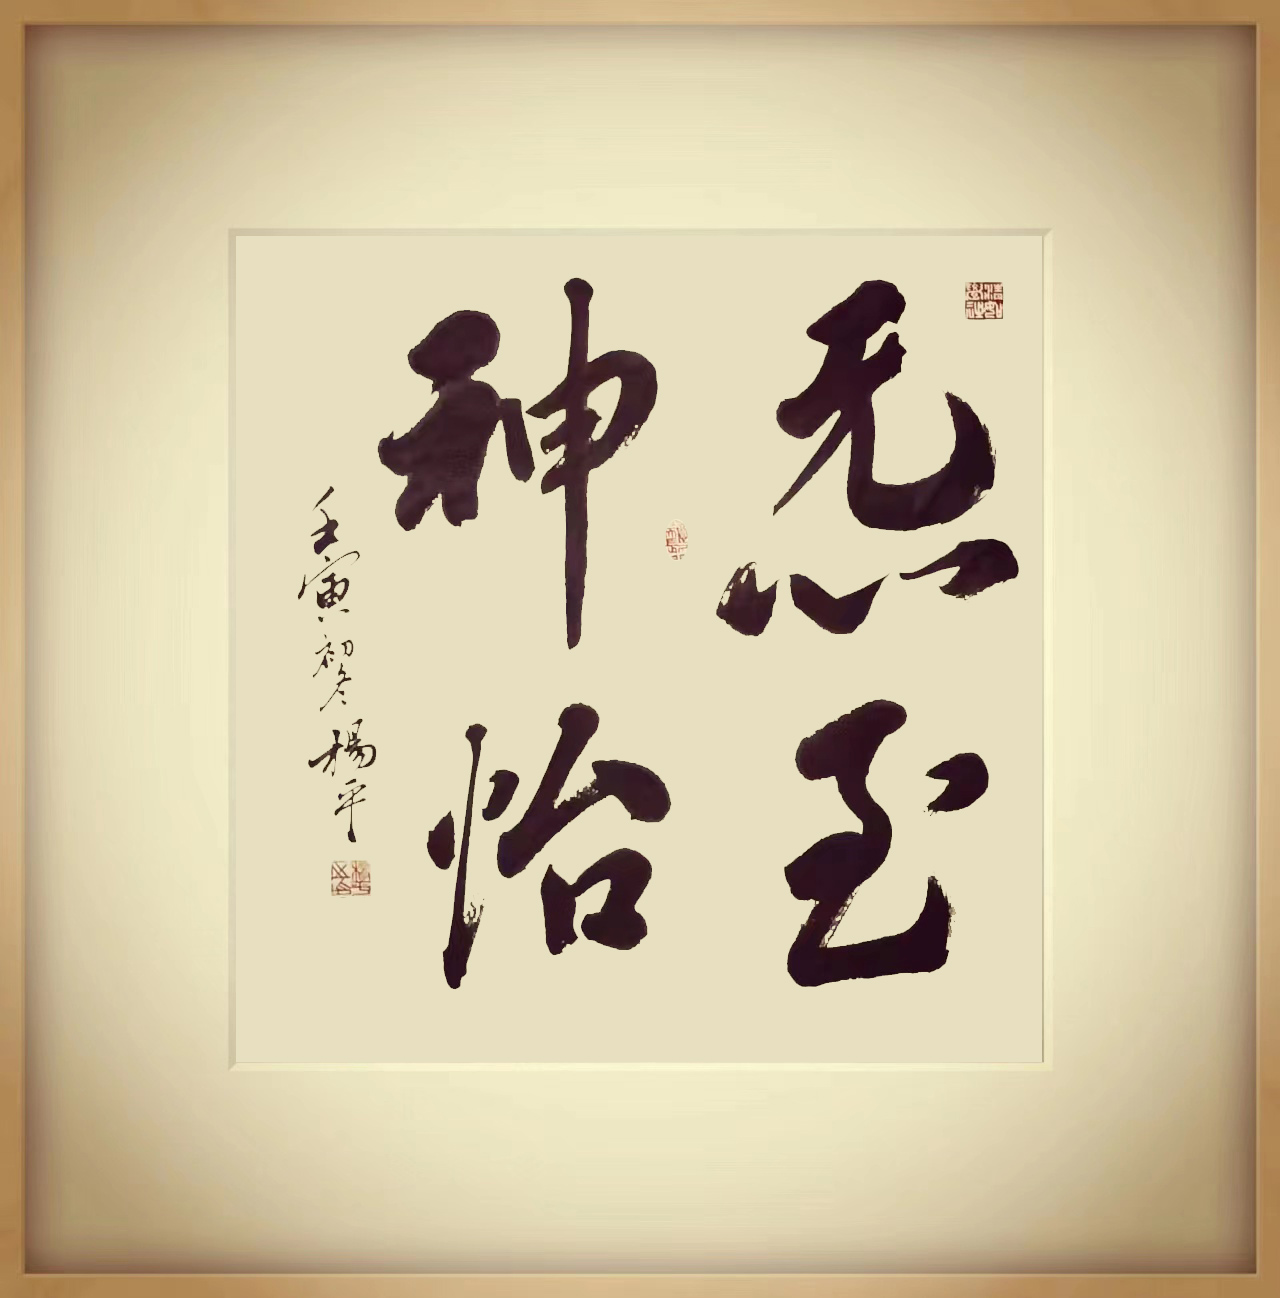 炁至
神怡
壬寅初冬楊平